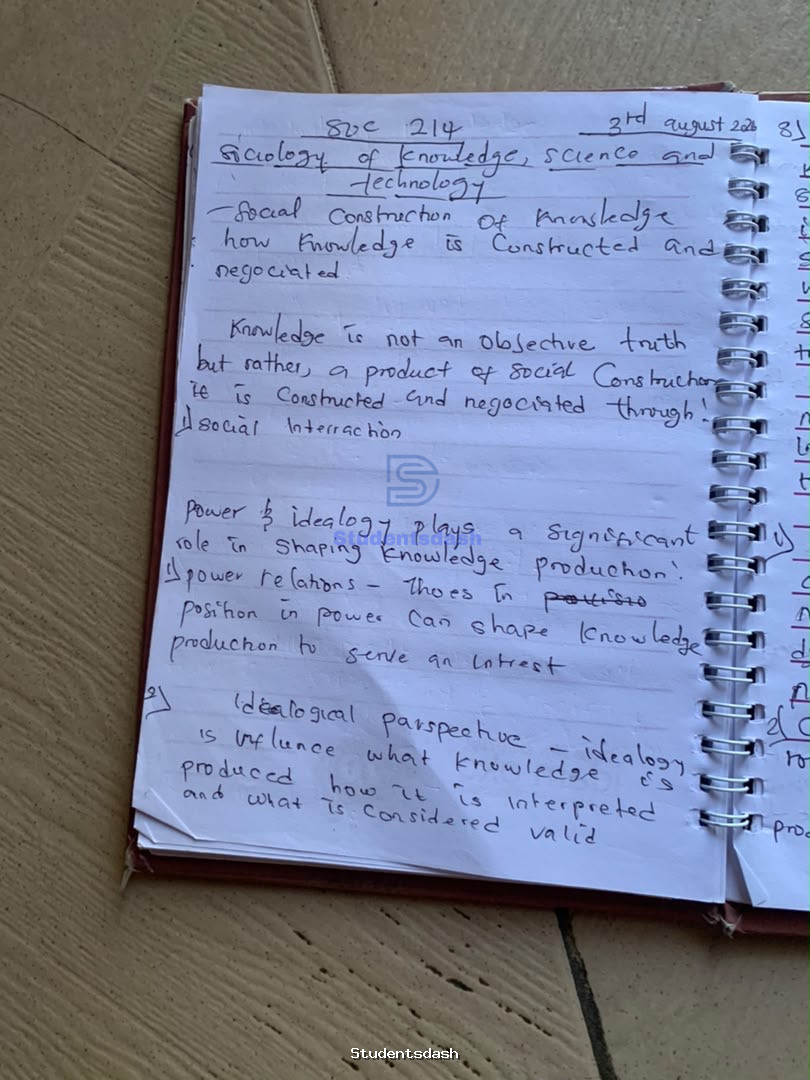 SOC 214 3rd august 2026
Sociology of knowledge, science and
technology
- Social Construction Of Knowledge
how Knowledge is Constructed and
negociated.
Knowledge is not an objective truth
but rather, a product of social Construction
it is Constructed and negociated through:
1) social Interraction
power & idealogy plays a significant
role in shaping Knowledge production:
1) power relations - Thoes In
position in power can shape Knowledge
production to serve an Intrest
2) Idealogical parspective - idealogy
is influnce what Knowledge is
produced how it is interpreted
and what is considered valid
Studentsdash
Studentsdash